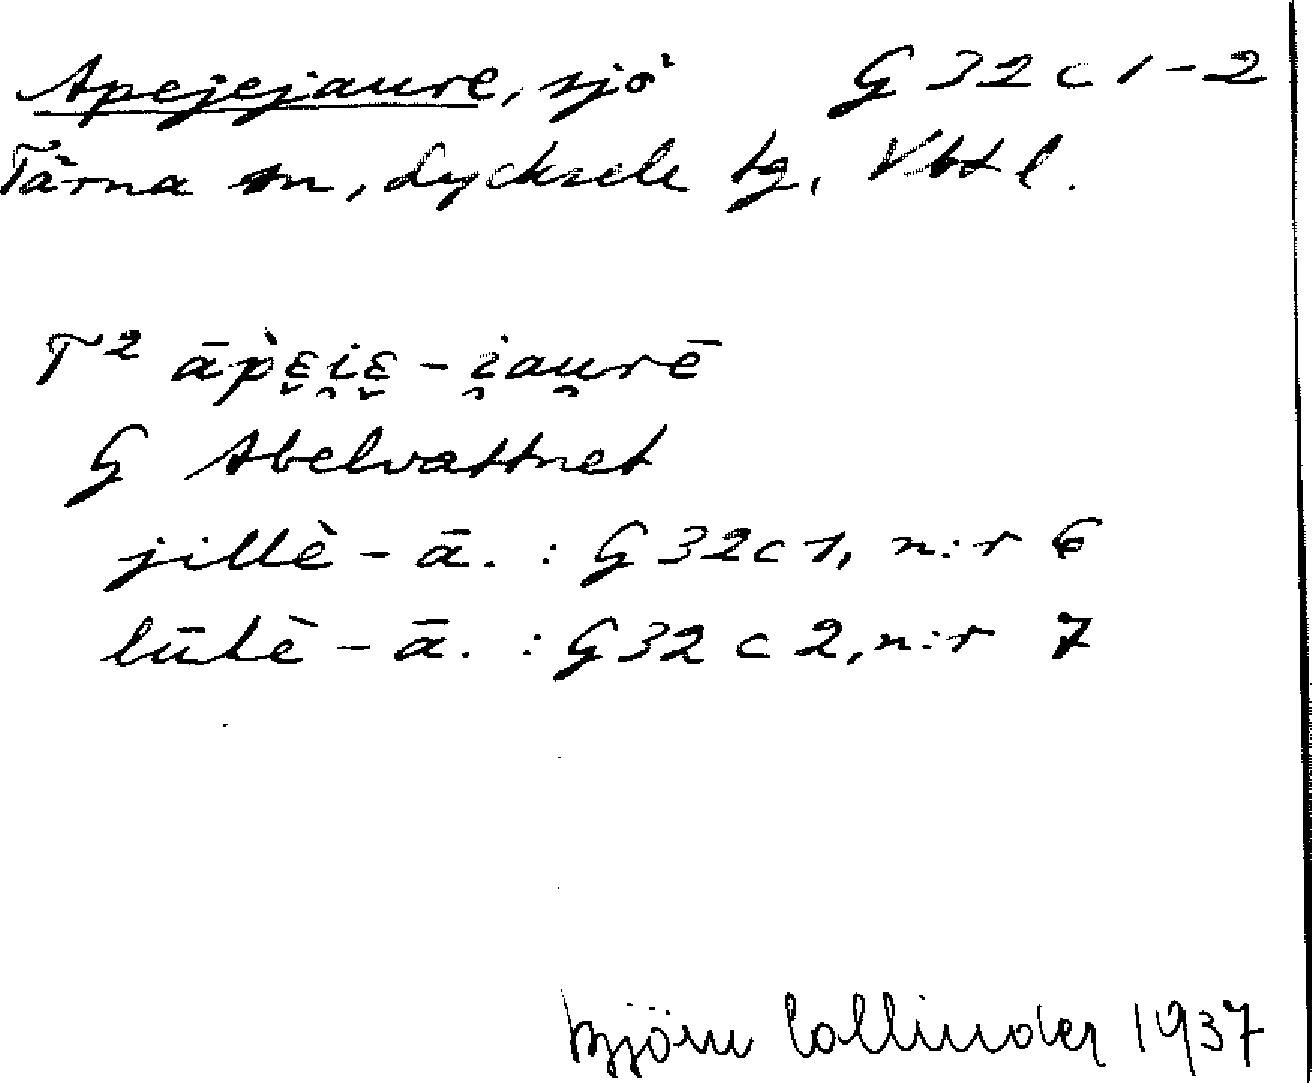 Apejejaure, sjö G 32 c 1-2
Tärna sn, Lycksele lg, Vbtl.
T² āp̀ɛ̬i̯ɛ̬ - i̯au̯rē
G Abelvattnet
jillè - ā. : G 32 c 1, n:r 6
lūlè - ā. : G 32 c 2, n:r 7
Björn Collinder 1937